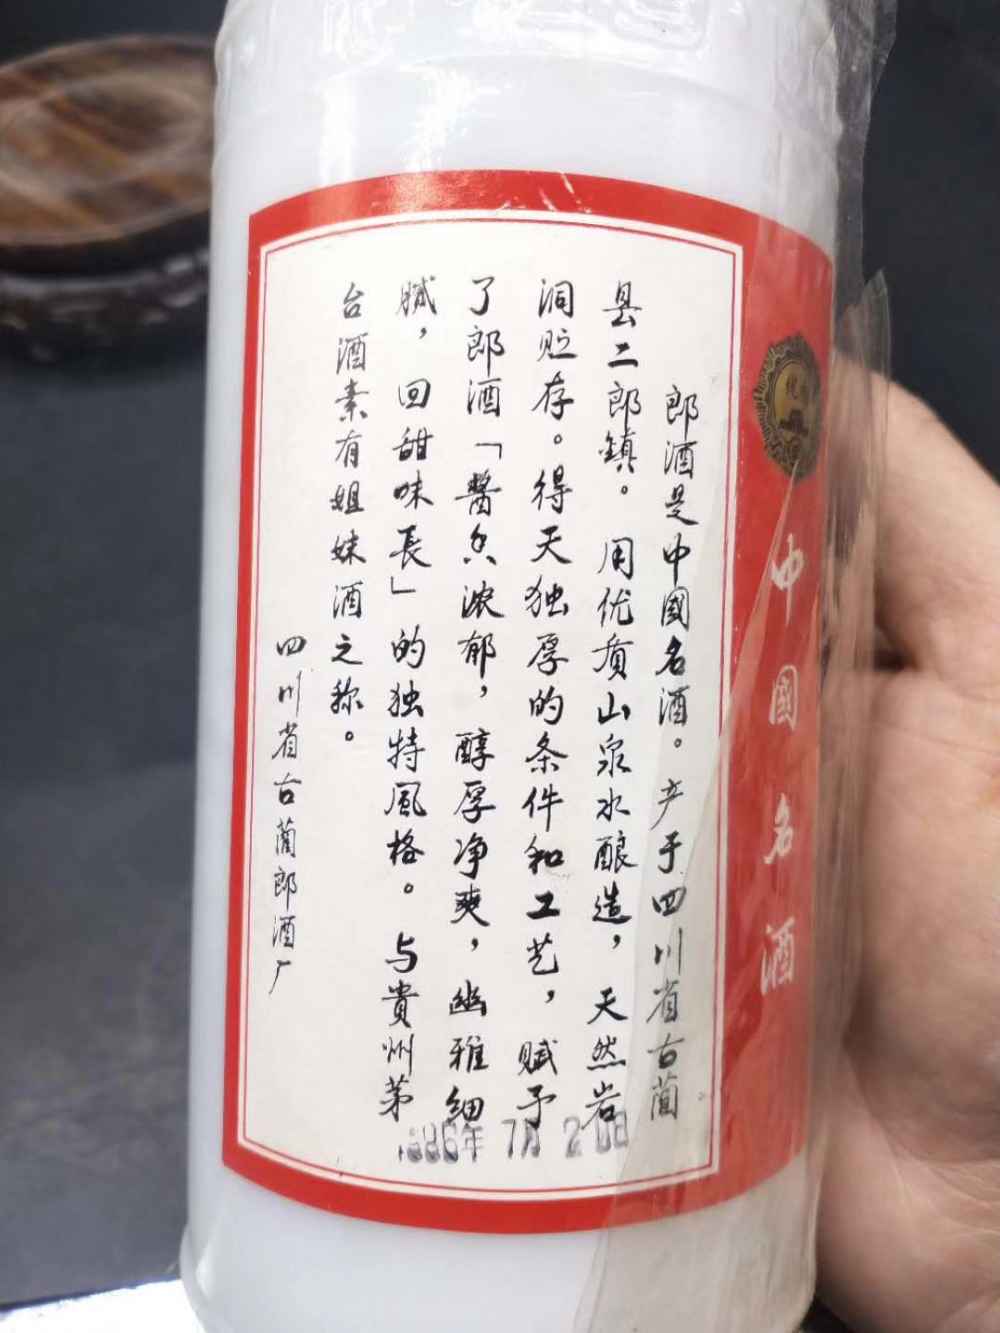 郎酒是中國名酒。产于四川省古蔺
县二郎鎮。用优質山泉水酿造，天然岩
洞贮存。得天独厚的条件和工艺，赋予
了郎酒「醬香浓郁，醇厚净爽，幽雅细
腻，回甜味長」的独特風格。与貴州茅
台酒素有姐妹酒之称。
四川省古蔺郎酒厂
1986年 7月 20日
中國名酒